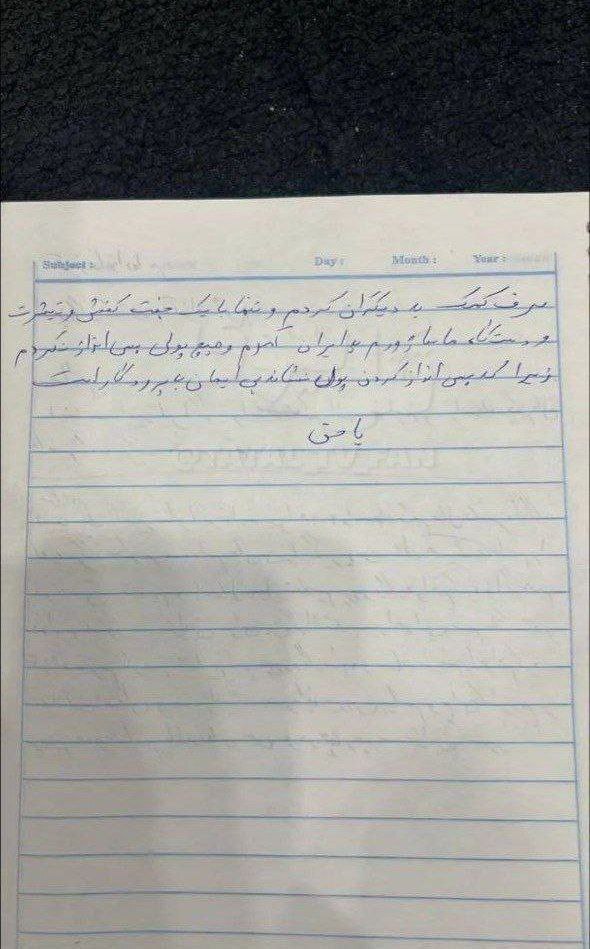 Subject : Day : Month : Year :
صرف کمک به دیگران کردم و تنها با یک جفت کفش و تیشرت
و دستگاه ماساژورم به ایران آمدم و هیچ پولی پس انداز نکردم
زیرا که پس انداز کردن پول نشانه بی ایمان به پروردگار است
یا حق